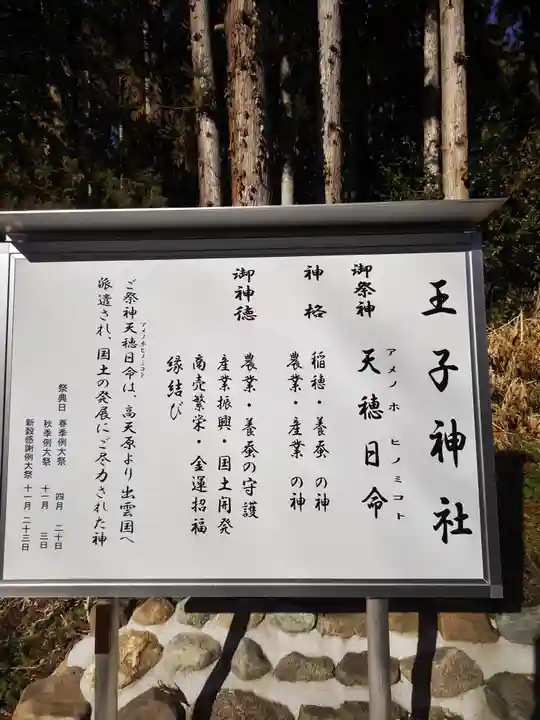 王子神社
御祭神 天穂日命
アメノホヒノミコト
神格 稲穂・養蚕の神
農業・産業の神
御神徳 農業・養蚕の守護
産業振興・国土開発
商売繁栄・金運招福
縁結び
ご祭神天穂日命は、高天原より出雲国へ
アメノホヒノミコト
派遣され、国土の発展にご尽力された神
祭典日 春季例大祭 四月 二十日
秋季例大祭 十一月 三日
新穀感謝例大祭 十一月 二十三日